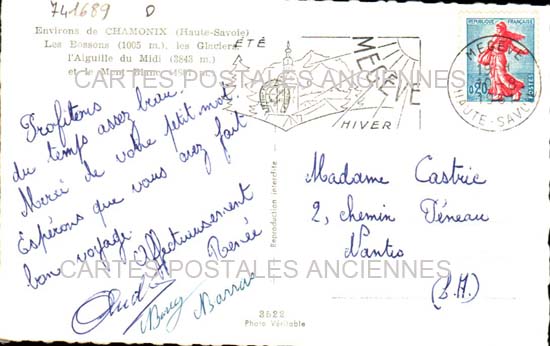 741689 D
Environs de CHAMONIX (Haute-Savoie)
Les Bossons (1005 m.), les Glaciers,
l'Aiguille du Midi (3843 m.)
et le Mont-Blanc
Profitons
du temps assez beau.
Merci de votre petit mot
Espérons que vous avez fait
bon voyage.
Affectueusement
Renée
Barras
ÉTÉ
MEGÈVE
HIVER
RÉPUBLIQUE FRANÇAISE
0,20
POSTES
MEGÈVE
HAUTE-SAVOIE
Reproduction interdite
Madame Castric
2, chemin Féneau
Nantes
(L.A.)
3522
Photo Véritable
CARTES POSTALES ANCIENNES
CARTES POSTALES ANCIENNES